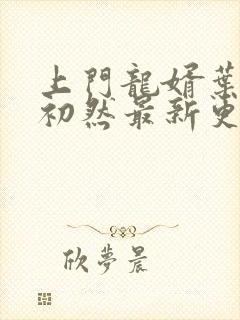 上門龍婿葉
初然最新更
欣夢晨